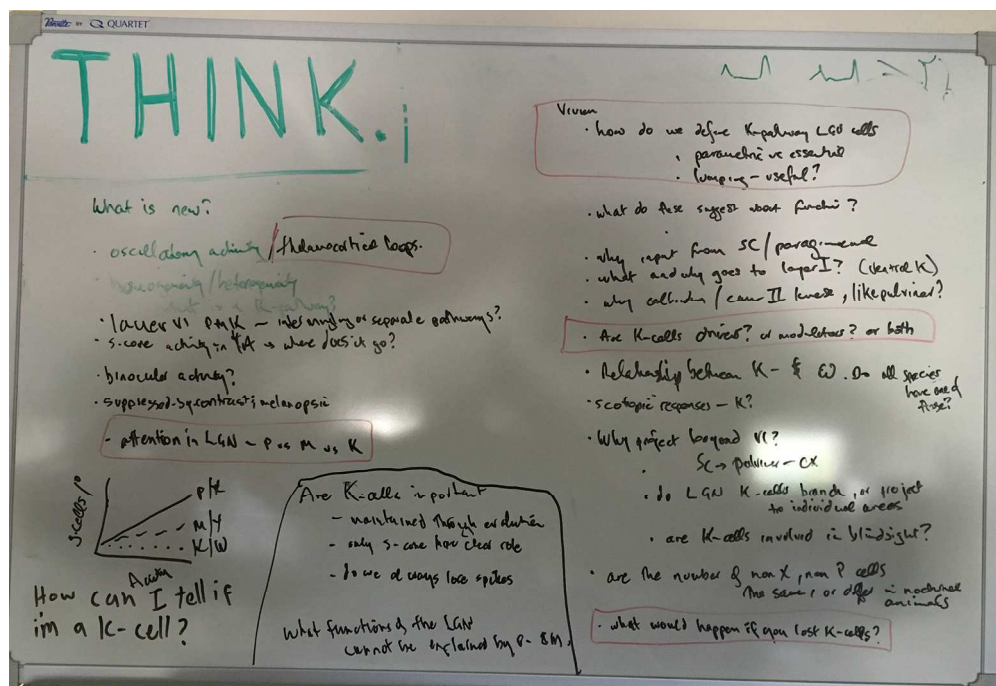 BY QUARTET
THINK.
What is new?
· oscillatory activity / thalamocortical loops.
· homogeneity / heterogeneity
what is a K-pathway?
· layer VI P M K – intermingling or separate pathways?
· S-cone activity in → where does it go?
· binocular activity?
· suppressed-by-contrast; melanopsin
- attention in LGN – P vs M vs K
S-cells
P/X
M/Y
K/W
Acuity
How can I tell if
im a K-cell?
Are K-cells important
- maintained through evolution
- only S-cone have clear role
- do we always lose spikes
What functions of the LGN
cannot be explained by P- & M.
· how do we define K-pathway LGN cells
· parametric vs essential
· lumping – useful?
· what do these suggest about function?
· why input from SC / parabigeminal
· what and why goes to layer I? (ventral K)
· why calbindin / II , like pulvinar?
· Are K-cells drivers? or modulators? or both
· Relationship between K- & W. Do all species
have one of
these?
· scotopic responses – K?
· Why project beyond V1?
· SC → pulvinar – CX
· do LGN K-cells branch, or project
to individual areas
· are K-cells involved in blindsight?
· are the number of non X, non P cells
the same, or differ in nocturnal
animals
· what would happen if you lost K-cells?